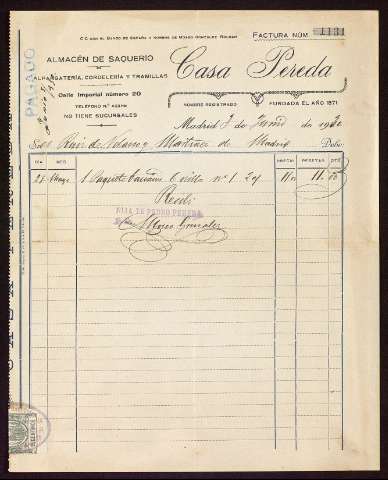 C/C con el Banco de España a nombre de Moisés González Roldán
FACTURA NÚM. 1131
PAGADO
ALMACÉN DE SAQUERIO
ALPARGATERÍA, CORDELERÍA Y TRAMILLAS
Calle Imperial número 20
TELÉFONO N.º
NO TIENE SUCURSALES
Casa Pereda
NOMBRE REGISTRADO
FUNDADA EL AÑO 1871
Madrid 3 de Junio de 1920
Sres Ruiz de Velasco y Martinez de Madrid Debe:
DÍA MES PESETAS PESETAS CTS
1 Paquete Nº 1 11
Recibí
HIJA DE PEDRO PEREDA
Moises Gonzalez